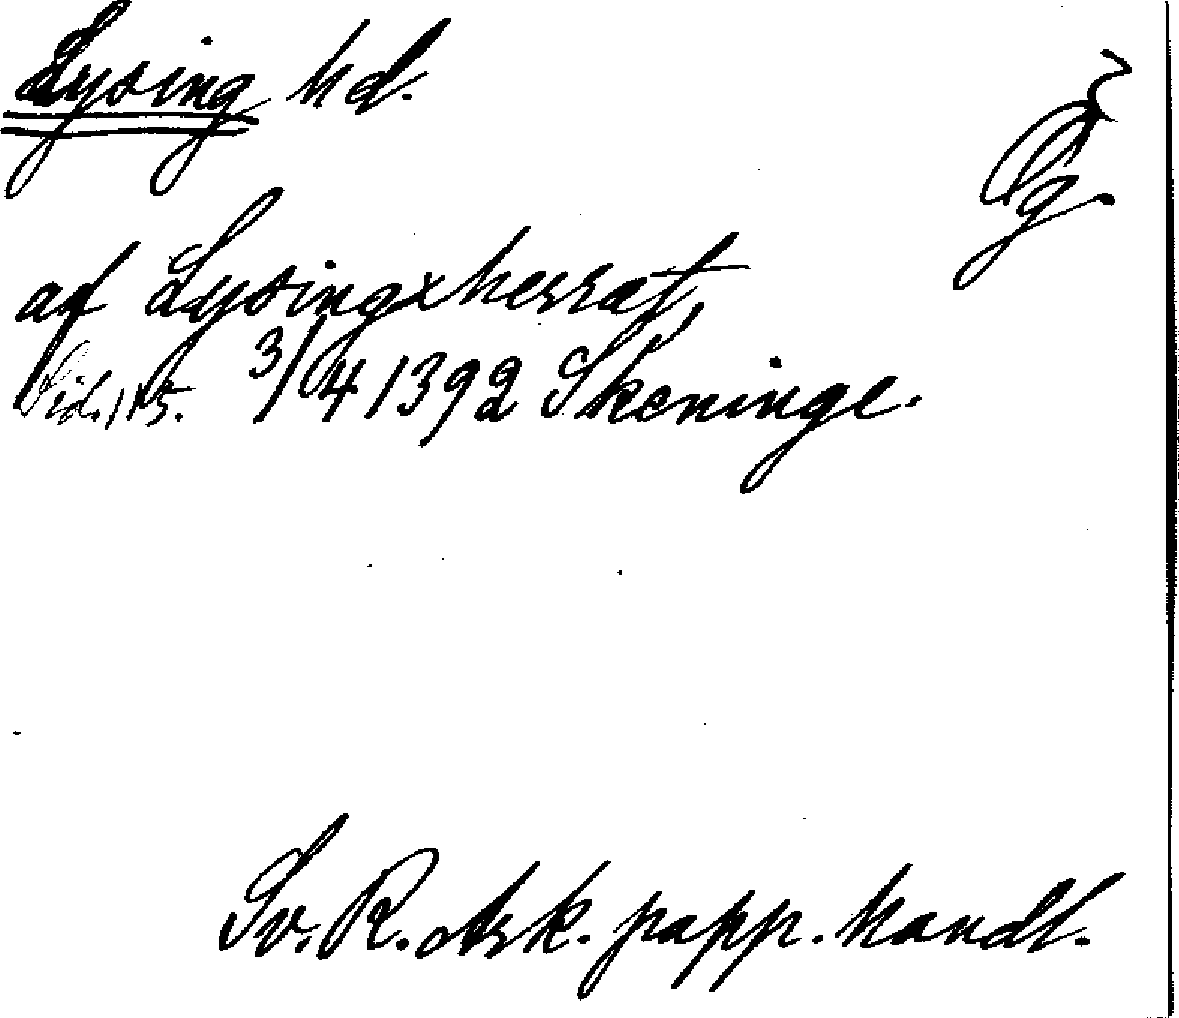 Lysing hd.
Ög.
af Lysingxherrat,
Sid. 115. 3/4 1392 Skeninge.
Sv. R. Ark. papp. handl.